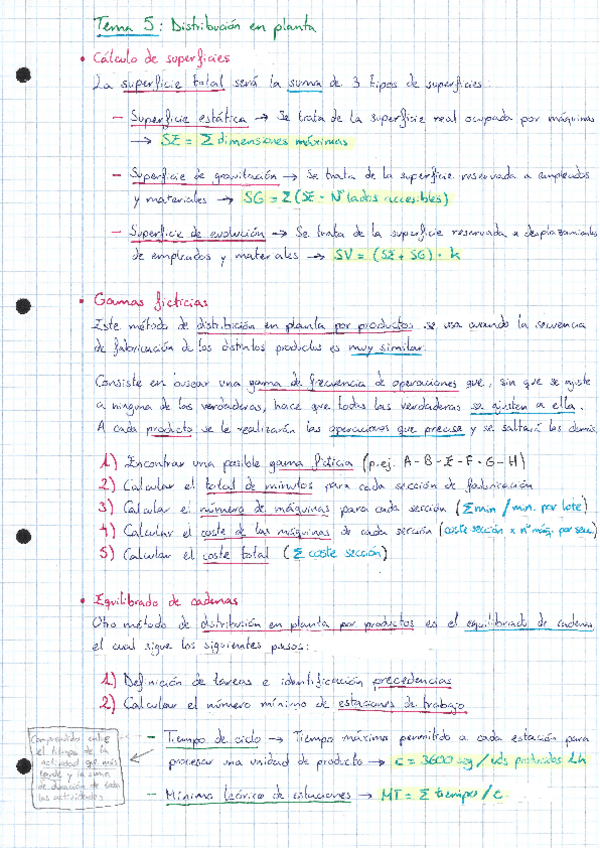 Tema 5: Distribución en planta
• Cálculo de superficies
La superficie total será la suma de 3 tipos de superficies:
— Superficie estática → Se trata de la superficie real ocupada por máquinas
→ SE = Σ dimensiones máximas
— Superficie de gravitación → Se trata de la superficie reservada a empleados
y materiales → SG = Σ (SE · Nº lados accesibles)
— Superficie de evolución → Se trata de la superficie reservada a desplazamientos
de empleados y materiales → SV = (SE + SG) · k
• Gamas ficticias
Este método de distribución en planta por productos se usa cuando la secuencia
de fabricación de los distintos productos es muy similar.
Consiste en buscar una gama de frecuencia de operaciones que, sin que se ajuste
a ninguna de las verdaderas, hace que todas las verdaderas se ajusten a ella.
A cada producto se le realizarán las operaciones que precise y se saltará las demás.
1) Encontrar una posible gama ficticia (p.ej. A-B-E-F-G-H)
2) Calcular el total de minutos para cada sección de fabricación
3) Calcular el número de máquinas para cada sección (Σmin / min. por lote)
4) Calcular el coste de las máquinas de cada sección (coste sección x nº máq. por secc)
5) Calcular el coste total (Σ coste sección)
• Equilibrado de cadenas
Otro método de distribución en planta por productos es el equilibrado de cadena
el cual sigue los siguientes pasos:
1) Definición de tareas e identificación precedencias
2) Calcular el número mínimo de estaciones de trabajo
— Tiempo de ciclo → Tiempo máximo permitido a cada estación para
procesar una unidad de producto → c = 3600 sg / uds producidas 1h
— Mínimo teórico de estaciones → MT = Σ tiempos / c
Comprendido entre
el tiempo de la
actividad que más
tarde y la suma
de duración de todas
las actividades